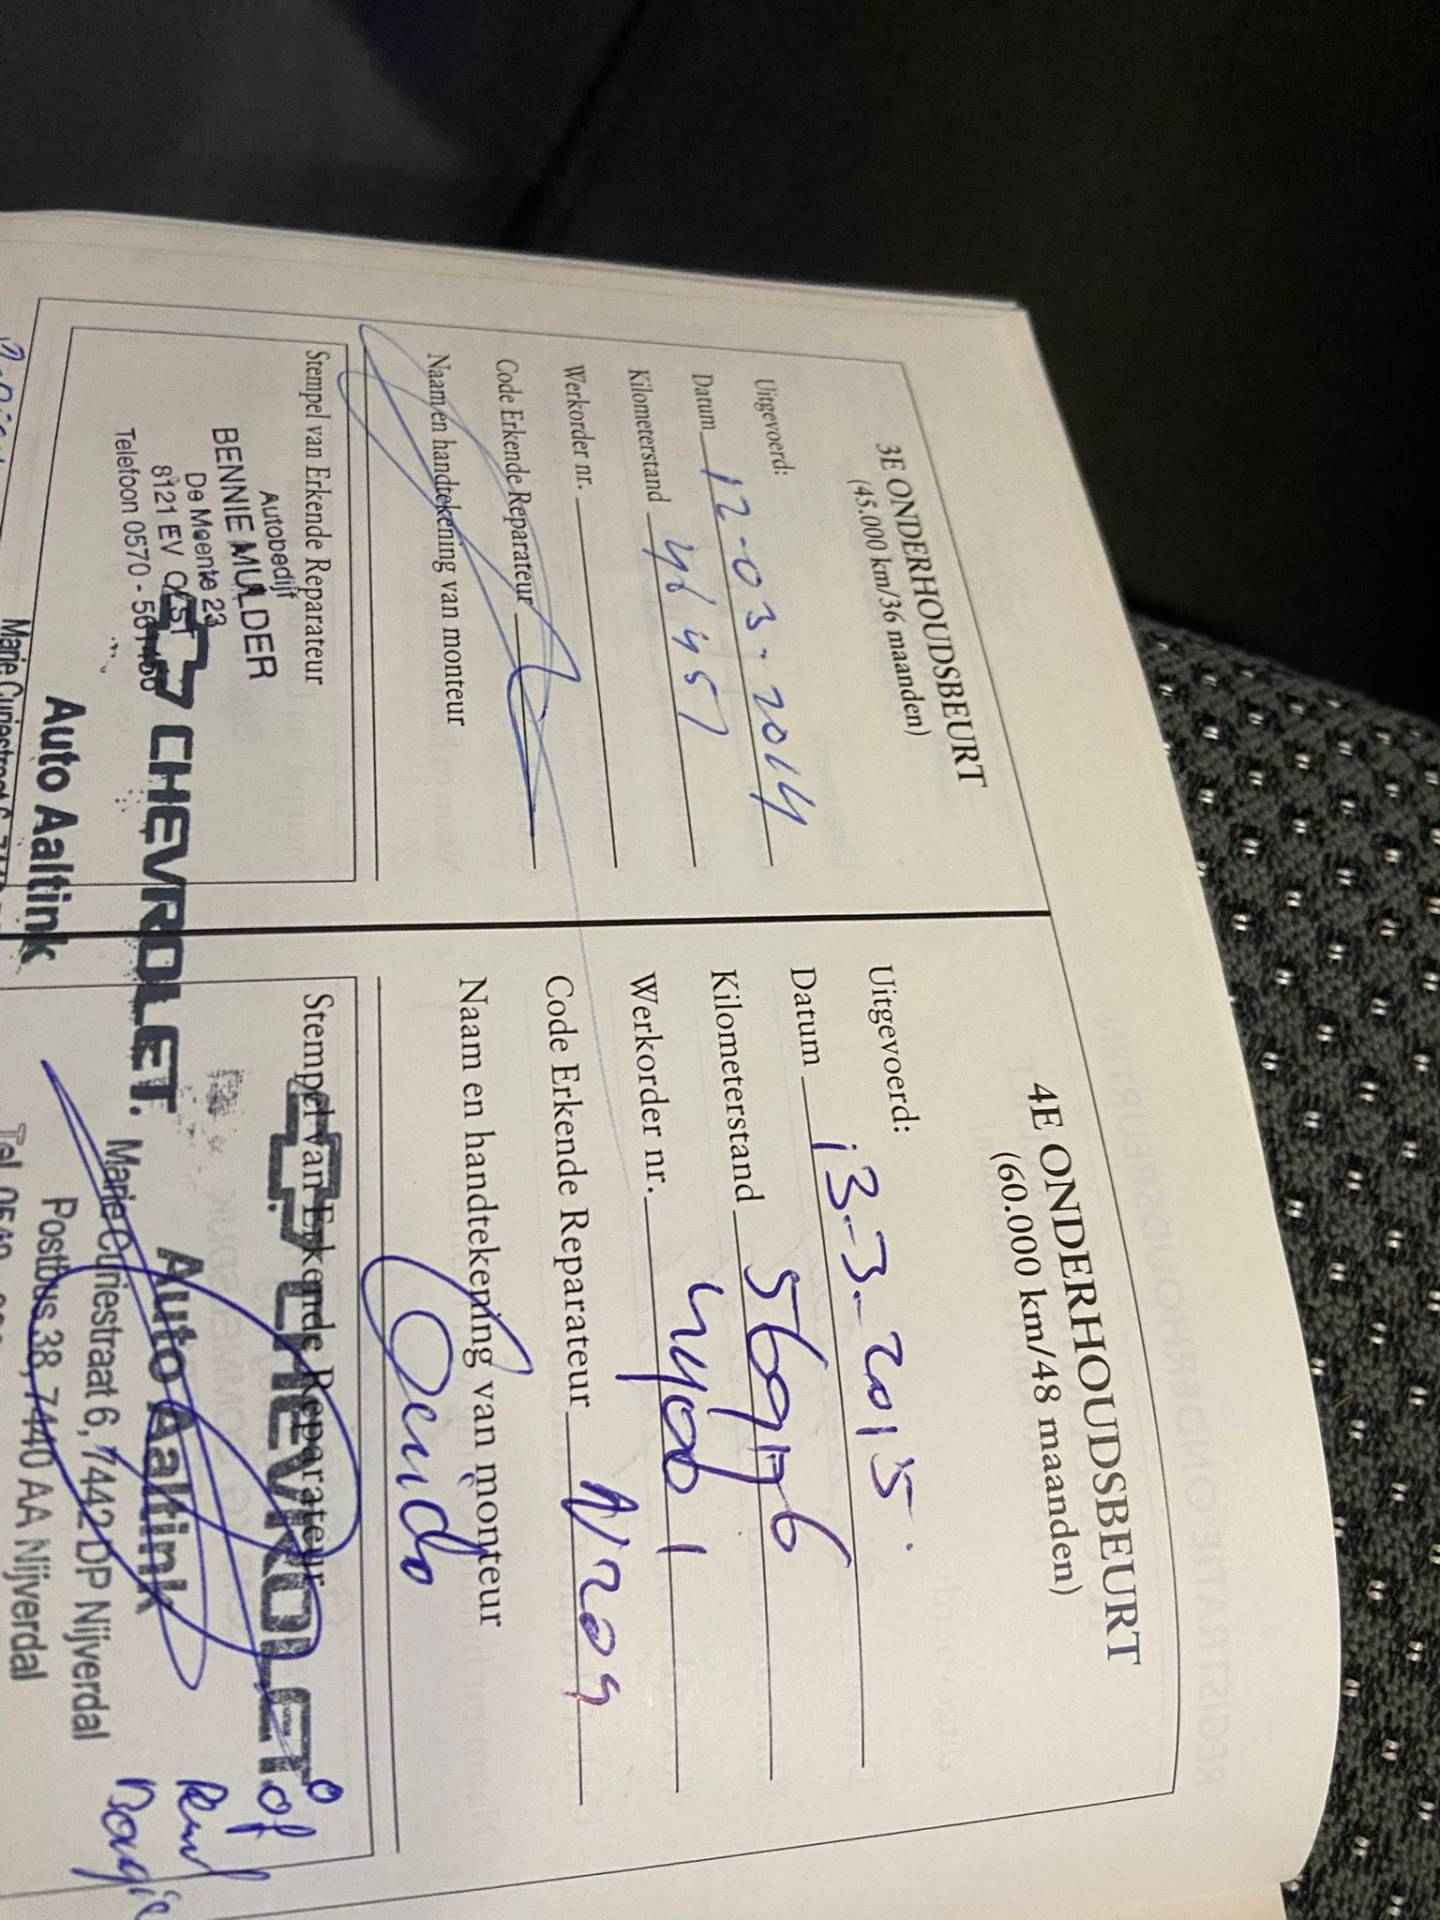 3E ONDERHOUDSBEURT
(45.000 km/36 maanden)
Uitgevoerd:
Datum 12-03-2014
Kilometerstand
Werkorder nr.
Code Erkende Reparateur
Naam en handtekening van monteur
Stempel van Erkende Reparateur
Autobedijf
BENNIE MULDER
De Meente 23
8121 EV OLST
Telefoon 0570 -
CHEVROLET.
Auto Aaltink
4E ONDERHOUDSBEURT
(60.000 km/48 maanden)
Uitgevoerd:
Datum 13-3-2015
Kilometerstand
Werkorder nr.
Code Erkende Reparateur N209
Naam en handtekening van monteur
Stempel van Erkende Reparateur
CHEVROLET
Auto Aaltink
Marie Curiestraat 6, 7442 DP Nijverdal
Postbus 38, 7440 AA Nijverdal